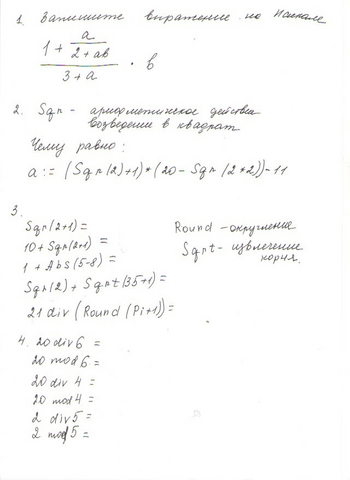 1. Запишите выражение на Паскале
1 + a/(2 + ab)
3 + a
· b
2. Sqr - арифметическое действие
возведения в квадрат
Чему равно:
a := (Sqr(2)+1)*(20-Sqr(2*2))-11
3.
Sqr(2+1)=
10+Sqr(2+1)=
1+Abs(5-8)=
Sqr(2)+Sqrt(35+1)=
21 div (Round(Pi+1))=
Round - округление
Sqrt - извлечение
корня.
4. 20 div 6 =
20 mod 6 =
20 div 4 =
20 mod 4 =
2 div 5 =
2 mod 5 =